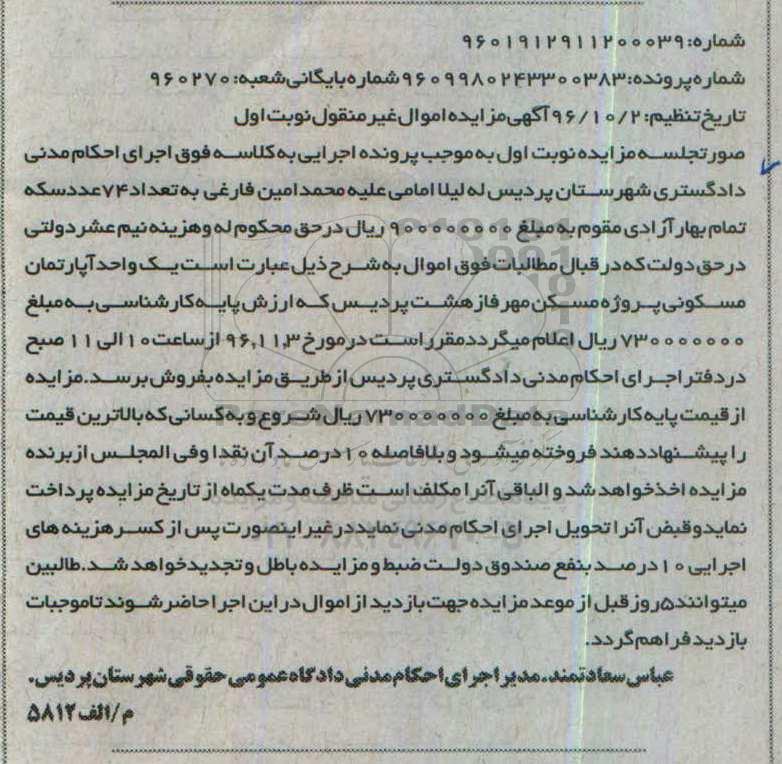 شماره: ۹۶۰۱۹۱۲۹۱۱۲۰۰۰۳۹
شماره پرونده: ۹۶۰۹۹۸۰۲۴۳۳۰۰۳۸۳ شماره بایگانی شعبه: ۹۶۰۲۷۰
تاریخ تنظیم: ۹۶/۱۰/۲ آگهی مزایده اموال غیر منقول نوبت اول
صورتجلسه مزایده نوبت اول به موجب پرونده اجرایی به کلاسه فوق اجرای احکام مدنی
دادگستری شهرستان پردیس له لیلا امامی علیه محمد امین فارغی به تعداد ۷۴ عدد سکه
تمام بهار آزادی مقوم به مبلغ ۹۰۰۰۰۰۰۰۰۰ ریال در حق محکوم له و هزینه نیم عشر دولتی
در حق دولت که در قبال مطالبات فوق اموال به شرح ذیل عبارت است یک واحد آپارتمان
مسکونی پروژه مسکن مهر فاز هشت پردیس که ارزش پایه کارشناسی به مبلغ
۷۳۰۰۰۰۰۰۰۰ ریال اعلام میگردد مقرر است در مورخ ۹۶,۱۱,۳ از ساعت ۱۰ الی ۱۱ صبح
در دفتر اجرای احکام مدنی دادگستری پردیس از طریق مزایده بفروش برسد. مزایده
از قیمت پایه کارشناسی به مبلغ ۷۳۰۰۰۰۰۰۰۰ ریال شروع و به کسانی که بالاترین قیمت
را پیشنهاد دهند فروخته میشود و بلافاصله ۱۰ درصد آن نقدا و فی المجلس از برنده
مزایده اخذ خواهد شد و الباقی آنرا مکلف است ظرف مدت یکماه از تاریخ مزایده پرداخت
نماید و قبض آنرا تحویل اجرای احکام مدنی نماید در غیر اینصورت پس از کسر هزینه های
اجرایی ۱۰ درصد بنفع صندوق دولت ضبط و مزایده باطل و تجدید خواهد شد. طالبین
میتوانند ۵ روز قبل از موعد مزایده جهت بازدید از اموال در این اجرا حاضر شوند تا موجبات
بازدید فراهم گردد.
عباس سعادتمند. مدیر اجرای احکام مدنی دادگاه عمومی حقوقی شهرستان پردیس.
م/الف ۵۸۱۲